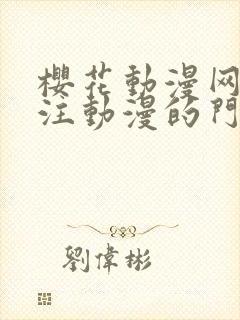 櫻花動漫网
注動漫的門
劉偉彬